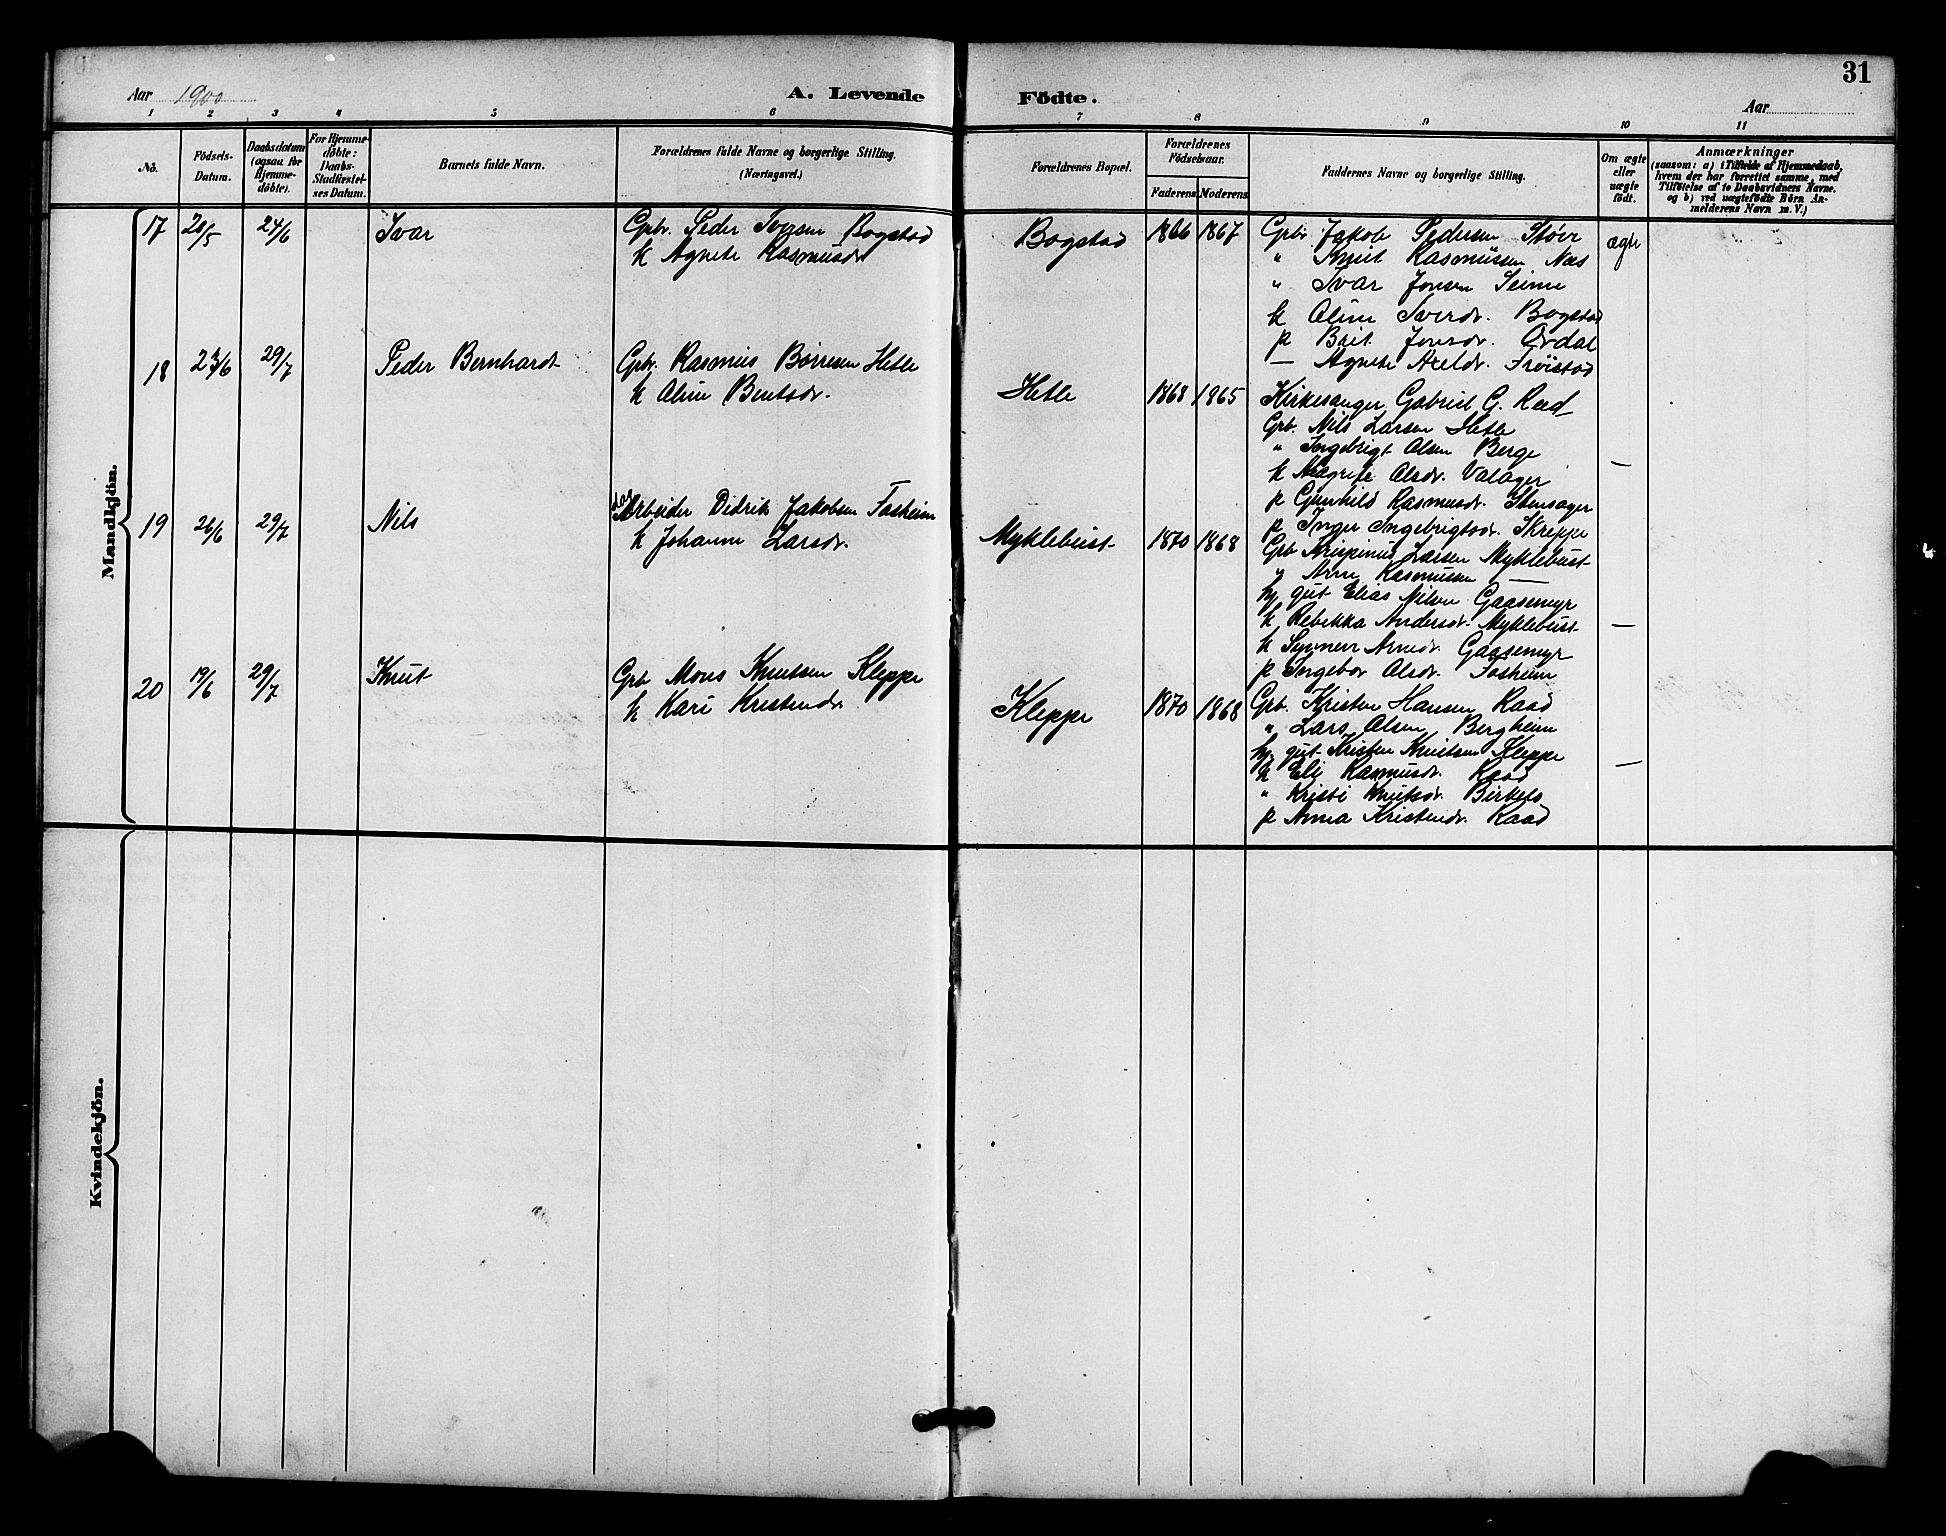 31
Aar 1900
A. Levende Födte.
Aar
1 2 3 4 5 6 7 8 9 10 11
No.
Födsels-Datum.
Daabsdatum (ogsaa for Hjemme-döbte).
For Hjemme-döbte: Daabs-Stadfæstel-ses Datum.
Barnets fulde Navn.
Forældrenes fulde Navne og borgerlige Stilling. (Næringsvei.)
Forældrenes Bopæl.
Forældrenes Födselsaar.
Faderens Moderens
Faddernes Navne og borgerlige Stilling.
Om ægte eller uægte födt.
Anmærkninger
(saasom: a) i Tilfælde af Hjemmedaab, hvem der har forrettet samme, med Tilföielse af to Daabsvidners Navne. og b) ved uægtefödte Börn An-melderens Navn m. V.)
Mandkjön.
17 20/5 24/6 Ivar
Gbr. Peder Ivarsen Bogstad
k Agnete Rasmusdr
Bogstad 1866 1867
Gbr. Jakob Pedersen Støve
" Knut Rasmussen Næs
" Ivar Jonsen Seime
k Aline Iversdr. Bogstad
p Brit Jonsdr. Årdal
— Agnete Axeldr. Frøistad
ægte
18 23/6 29/7 Peder Bernhardt
Gbr. Rasmus Børresen Hetle
k Aline Bentsdr.
Hetle 1868 1865
Kirkesanger Gabriel G. Red
Grb. Nils Larsen Hetle
" Ingebrigt Olsen Berge
k Magrete Olsdr. Valager
p Gunhild Rasmusdr. Stensager
p Inger Ingebrigtsdr. Skreppe
—
19 26/6 29/7 Nils
dag Arbeider Didrik Jakobsen Fosheim
k Johanne Larsdr.
Myklebust 1870 1868
Grb Krispinus Larsen Myklebust
" Arne Rasmussen —
hj gut Elias Nilsen Gaasemyr
k Rebekka Andersdr. Myklebust
k Synneve Arnedr. Gaasemyr
p Ingebor Olsdr. Fosheim
—
20 19/6 29/7 Knut
Grb Mons Knutsen Kleppe
k Kari Kristendr
Kleppe 1870 1868
Grb. Kristen Hansen Raad
" Lars Olsen Bergheim
hj gut Kristen Knutsen Kleppe
k Eli Rasmusdr. Raad
" Kristi Knutsdr. Birkelo
p Anna Kristendr. Raad
—
Kvindekjön.